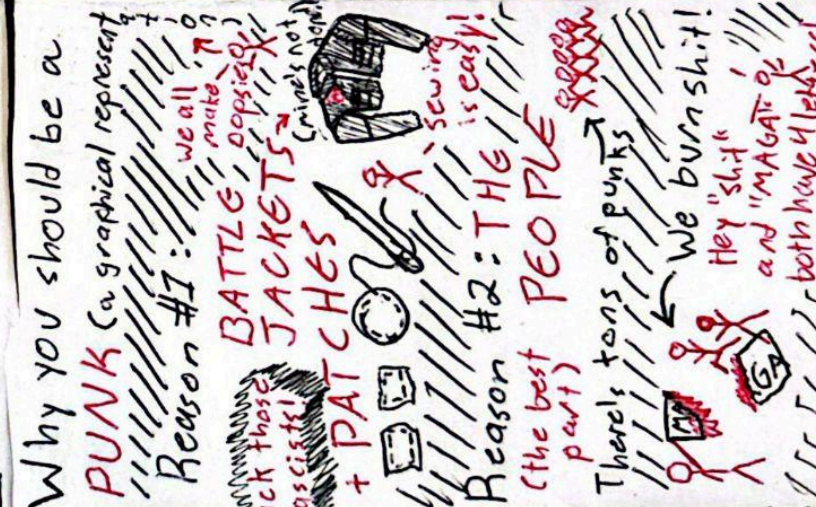 Why you should be a
PUNK (a graphical represent
ation)
Reason #1:
we all
make
oopsies
BATTLE
JACKETS
+ PATCHES
(mine's not
done)
sewing
is easy!
ck those
ascists!
Reason #2: THE
PEOPLE
(the best
part)
There's tons of punks
We burn shit!
Hey "shit"
and "MAGA"
both have 4 letters!
MA
GA